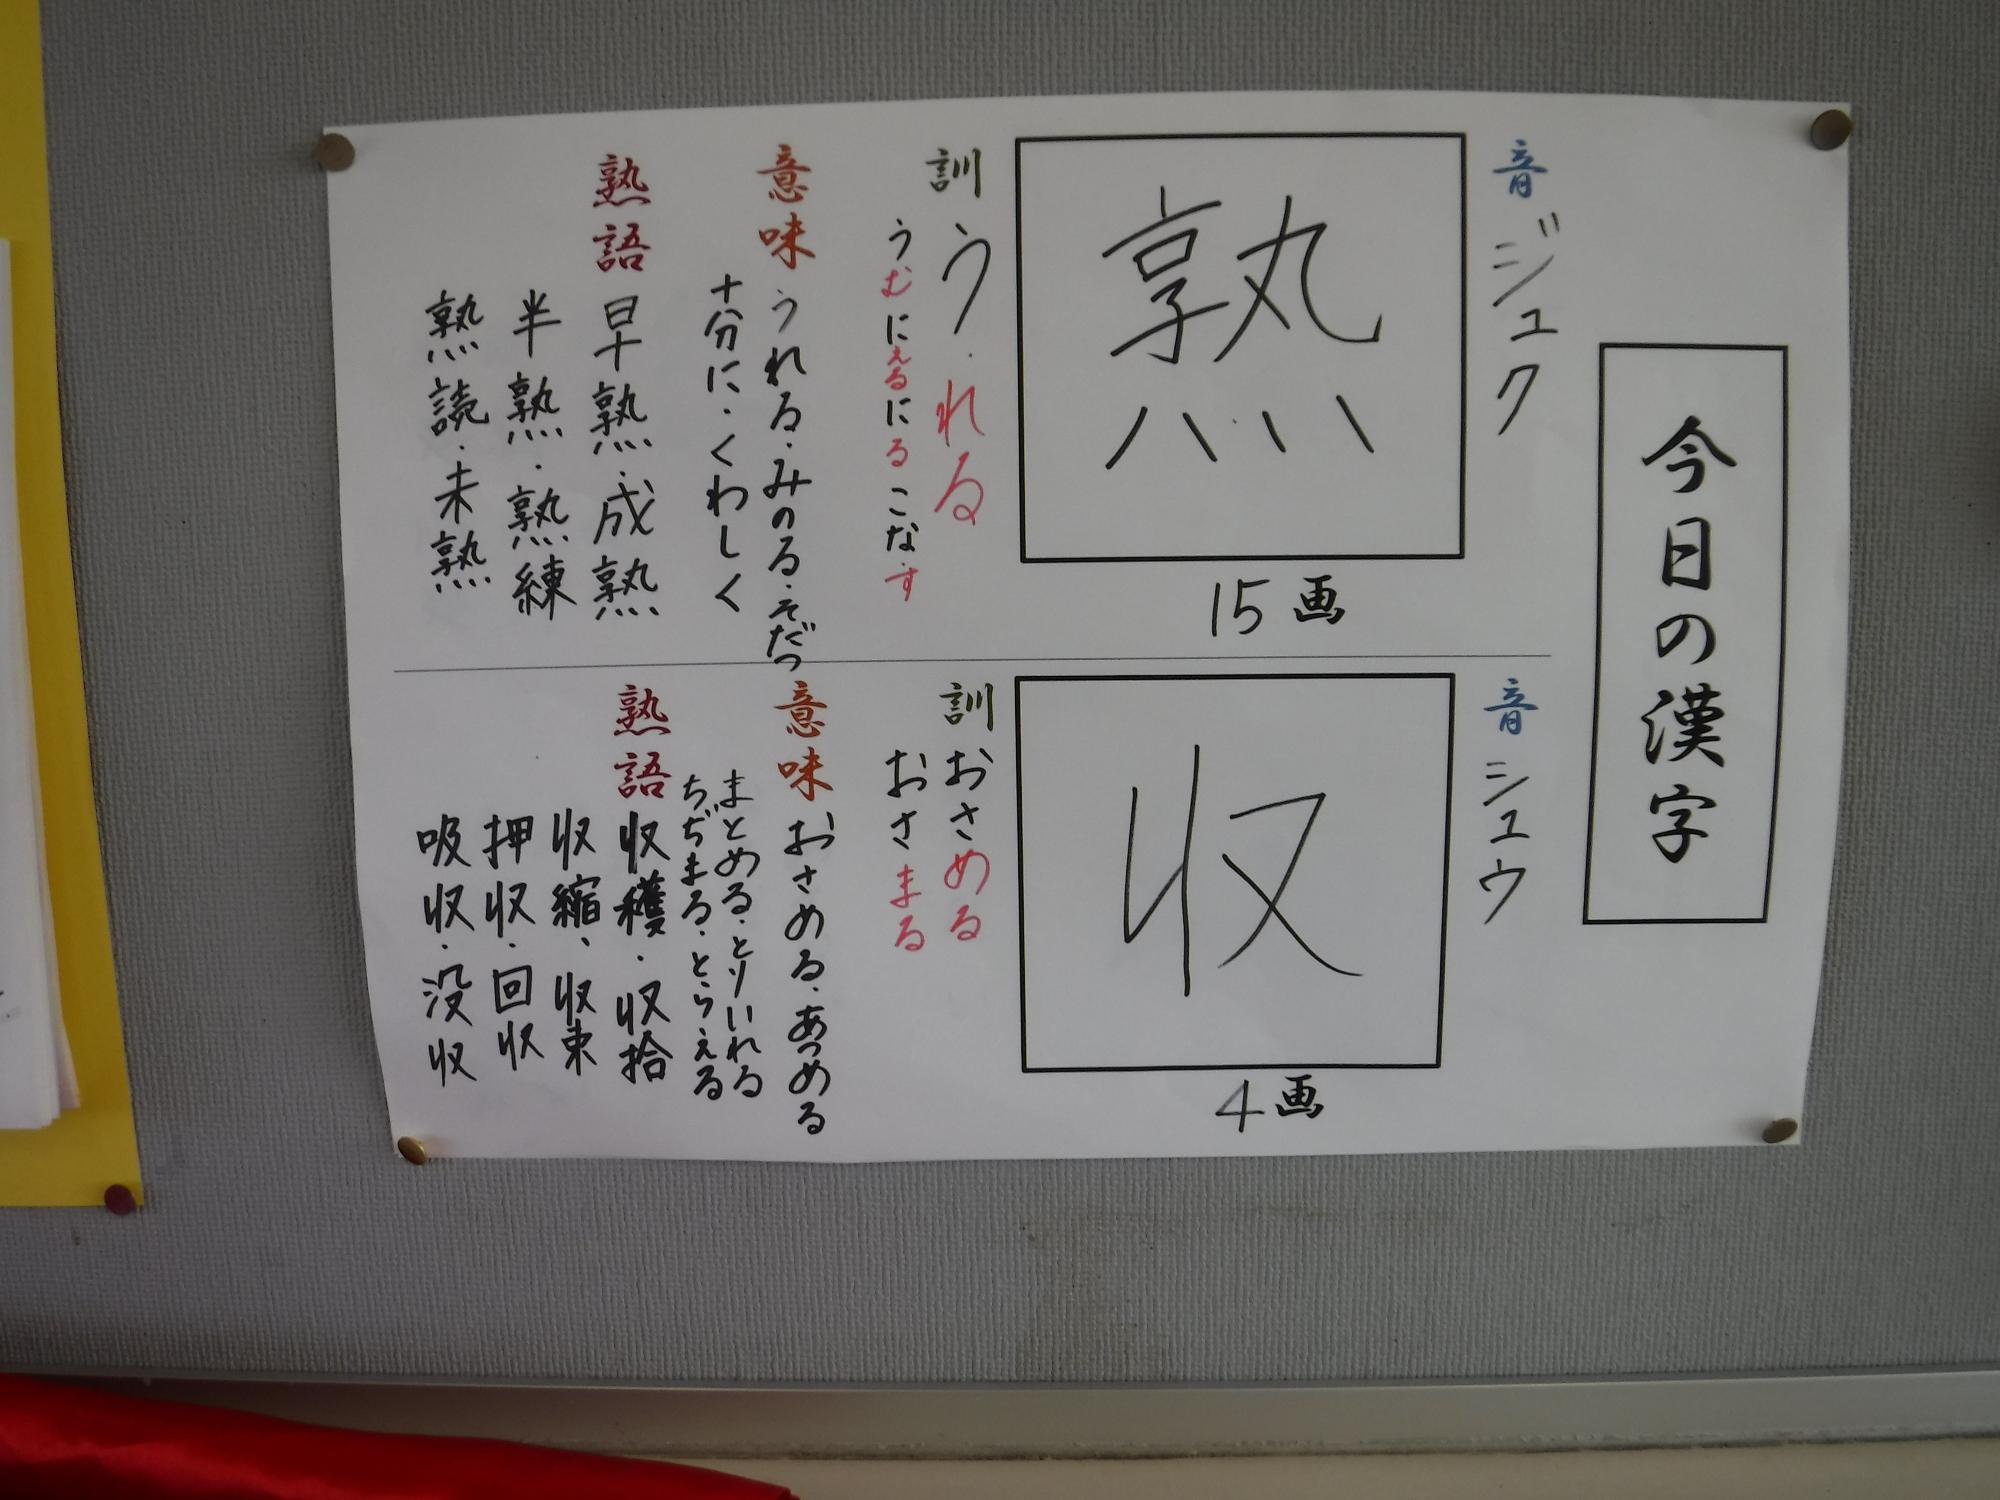 今日の漢字
音 ジュク
熟
15画
訓 う.れる
うむ にえる にる こなす
意味 うれる・みのる・そだつ
十分に・くわしく
熟語 早熟・成熟
半熟・熟練
熟読・未熟
音 シュウ
収
4画
訓 おさめる
おさまる
意味 おさめる・あつめる
まとめる・とりいれる
ちぢまる・とらえる
熟語 収穫・収拾
収縮、収束
押収・回収
吸収・没収